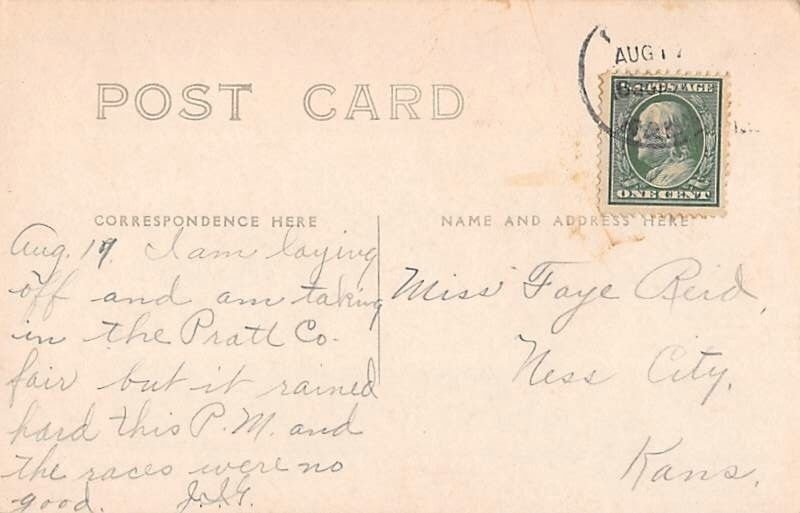 POST CARD
AUG 17
U.S. POSTAGE
ONE CENT
CORRESPONDENCE HERE
NAME AND ADDRESS HERE
Aug. 17. I am laying
off and am taking
in the Pratt Co.
fair but it rained
hard this P.M. and
the races were no
good. J.S.G.
Miss Faye Reid,
Ness City,
Kans.